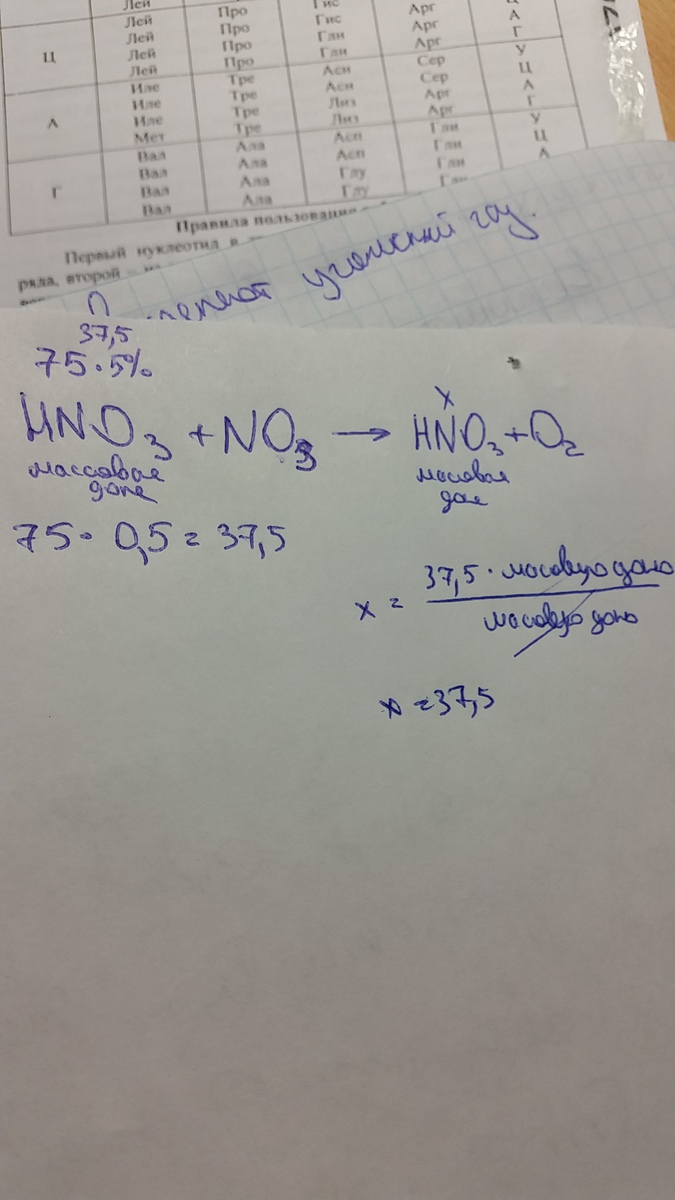 Лей Про Гис Арг Ц
Лей Про Гис Арг А
Ц Лей Про Глн Арг Г
Лей Про Глн Арг
Иле Тре Асн Сер У
Иле Тре Асн Сер Ц
А Иле Тре Лиз Арг А
Мет Тре Лиз Арг Г
Вал Ала Асп Гли У
Вал Ала Асп Гли Ц
Г Вал Ала Глу Гли А
Вал Ала Глу
Правила пользования
Первый нуклеотид в
ряда, второй –
газ.
37,5
75 · 5%
HNO3 + NO3 → HNO3 + O2
x
массовая
доля
масовая
доя
75 · 0,5 = 37,5
x = 37,5 · масовую долю
масовую долю
x = 37,5